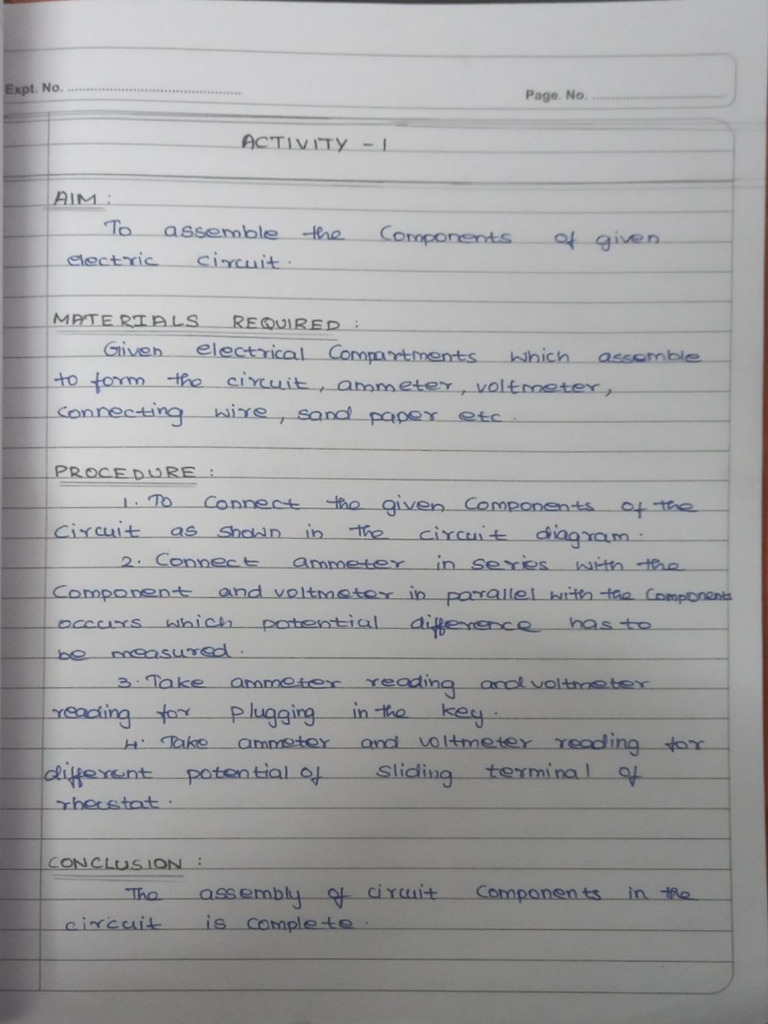 Expt. No.
Page. No.
ACTIVITY - 1
AIM :
To assemble the Components of given
electric circuit.
MATERIALS REQUIRED :
Given electrical Compartments which assemble
to form the circuit, ammeter, voltmeter,
Connecting wire, sand paper etc.
PROCEDURE :
1. To Connect the given Components of the
Circuit as shown in the circuit diagram.
2. Connect ammeter in series with the
Component and voltmeter in parallel with the Components
occurs which potential difference has to
be measured.
3. Take ammeter reading and voltmeter
reading for plugging in the key.
4. Take ammeter and voltmeter reading for
different potential of sliding terminal of
rheostat.
CONCLUSION :
The assembly of circuit Components in the
circuit is complete.